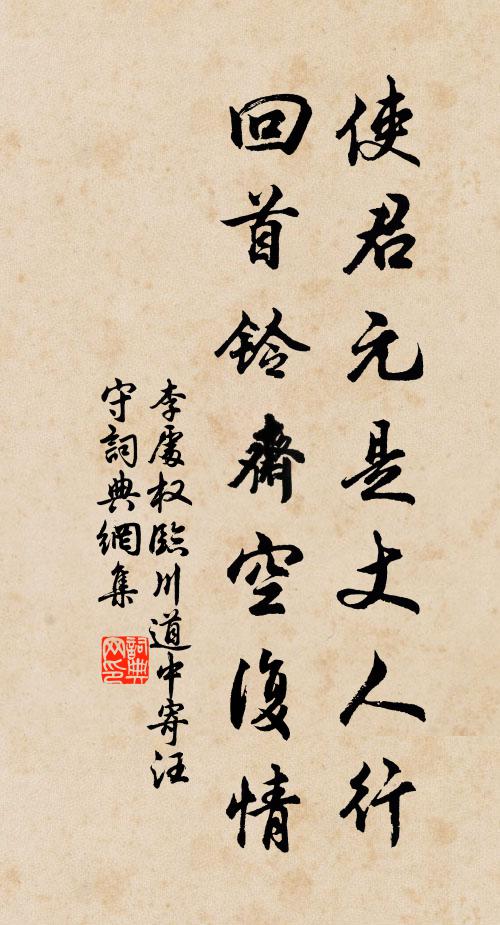 使君元是丈人行
回首铃齋空復情
李處权臨川道中寄汪
守詞典網集
詞典
网印